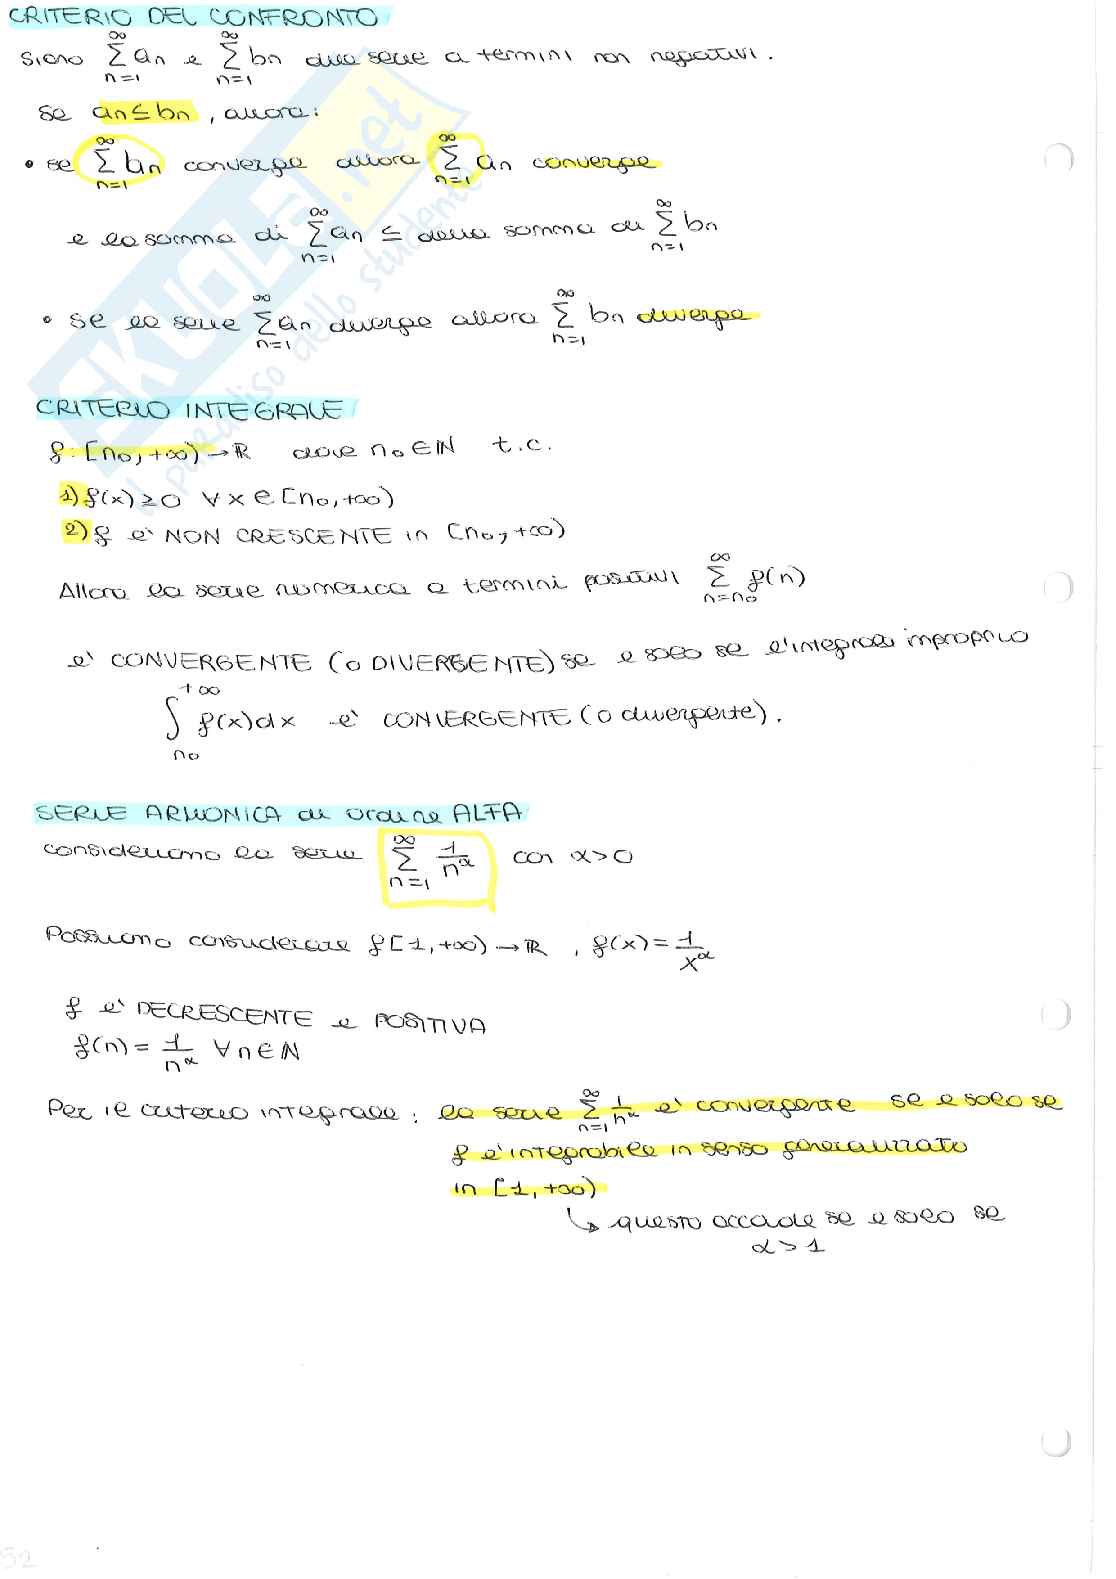 CRITERIO DEL CONFRONTO
Siano ∞∑n=1 an e ∞∑n=1 bn due serie a termini non negativi.
Se an ≤ bn, allora:
• se ∞∑n=1 bn converge allora ∞∑n=1 an converge
e la somma di ∞∑n=1 an ≤ della somma di ∞∑n=1 bn
• Se la serie ∞∑n=1 an diverge allora ∞∑n=1 bn diverge
CRITERIO INTEGRALE
f: [n0, +∞) → ℝ dove n0 ∈ ℕ t.c.
1) f(x) ≥ 0 ∀ x ∈ [n0, +∞)
2) f è NON CRESCENTE in [n0, +∞)
Allora la serie numerica a termini positivi ∞∑n=n0 f(n)
è CONVERGENTE (o DIVERGENTE) se e solo se l'integrale improprio
∫n0+∞ f(x)dx è CONVERGENTE (o divergente).
SERIE ARMONICA di ordine ALFA
consideriamo la serie ∞∑n=1 1/n^α con α > 0
Possiamo considerare f [1, +∞) → ℝ, f(x) = 1/x^α
f è DECRESCENTE e POSITIVA
f(n) = 1/n^α ∀ n ∈ ℕ
Per il criterio integrale: la serie ∞∑n=1 1/n^α è convergente se e solo se
f è integrabile in senso generalizzato
in [1, +∞)
↳ questo accade se e solo se
α > 1
SKUOLA.net
il paradiso dello studente
52